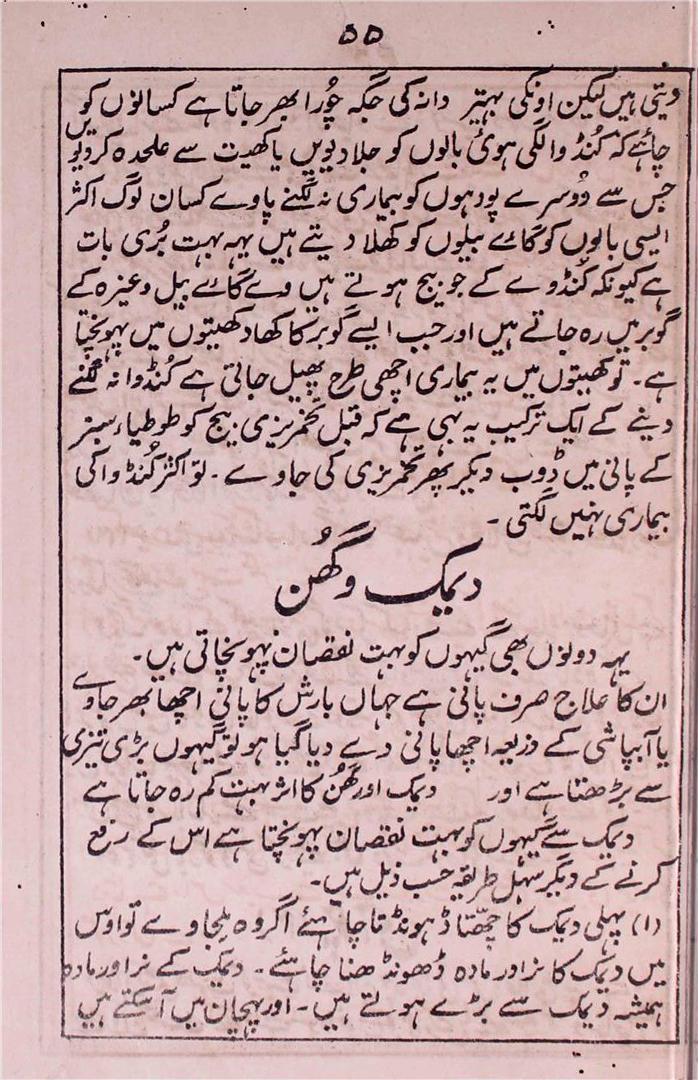 ۵۵
دیتی ہیں لیکن اونکی بہتیر دانہ کی جگہ چُورا بھر جاتا ہے کسانوں کو
چاہئے کہ کُنڈوا لگی ہوئی بالوں کو جلا دیویں یا کھیت سے علحدہ کردیویں
جس سے دُوسرے پودہوں کو بیماری نہ لگنے پاوے کسان لوگ اکثر
ایسی بالوں کو گائے بیلوں کو کھلا دیتے ہیں یہہ بہت بُری بات
ہے کیونکہ کُنڈوے کے جو بیج ہوتے ہیں وے گائے بیل وغیرہ کے
گوبر میں رہ جاتے ہیں اور جب ایسے گوبر کا کھاد کھیتوں میں پہونچتا
ہے۔ تو کھیتوں میں یہ بیماری اچھی طرح پھیل جاتی ہے کُنڈوا نہ لگنے
دینے کے ایک ترکیب یہ بہی ہے کہ قبل تخمریزی بیج کو طوطیاء سبز
کے پانی میں ڈوب دیکر پھر تخمریزی کی جاوے۔ تو اکثر کُنڈوا کی
بیماری نہیں لگتی۔
دیمک و گھُن
یہہ دونوں بھی گیہوں کو بہت نقصان پہونچاتی ہیں۔
ان کا علاج صرف پانی ہے جہاں بارش کا پانی اچھا بھر جاوے
یا آبپاشی کے ذریعہ اچھا پانی دے دیا گیا ہو تو گیہوں بڑی تیزی
سے بڑھتا ہے اور دیمک اور گھُن کا اثر بہت کم رہ جاتا ہے
دیمک سے گیہوں کو بہت نقصان پہونچتا ہے اس کے رفع
کرنے کے دیگر سہل طریقہ حسب ذیل ہیں۔
(۱) پہلی دیمک کا چھتّا ڈہونڈنا چاہئے اگر وہ ملجاوے تو اوس
میں دیمک کا نر اور مادہ ڈھونڈھنا چاہئے۔ دیمک کے نر اور مادہ
ہمیشہ دیمک سے بڑے ہوتے ہیں۔ اور پہچان میں آسکتے ہیں